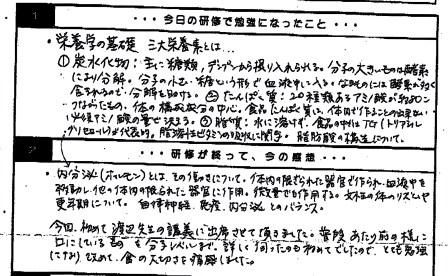 1 ・・・今日の研修で勉強になったこと・・・
・栄養学の基礎 三大栄養素とは…
① 炭水化物:主に糖類, デンプンから取り入れられる。分子の大きいものは酵素
により分解。分子の小さい糖という形で血液中に入る。
含まれるので、分解を助ける。②たんぱく質:20種類あるアミノ酸が
つながったもの。体の構成成分の中心。食品たんぱく質は、体内で作ることの出来ない
必須アミノ酸の量で決まる。③脂質:水に溶けず、食品の中はTG(トリアシル
グリセロール)が代表的。脂溶性ビタミンの吸収に関与。脂肪酸の構造について。
2 ・・・研修が終って、今の感想・・・
・内分泌(ホルモン)とは、その働きについて。体内の限られた器官で作られ血液中を
移動し他の体内の限られた器官に作用。微量でも作用する。女性の体のリズムや
更年期について。自律神経、免疫、内分泌とのバランス。
今回、初めて渡辺先生の講義に出席させて頂きました。普段あたり前の様に
口にしているものを分子レベルまで、詳しく伺ったのも初めてでしたので、とても勉強
になり、改めて、食の大切さを痛感しました。